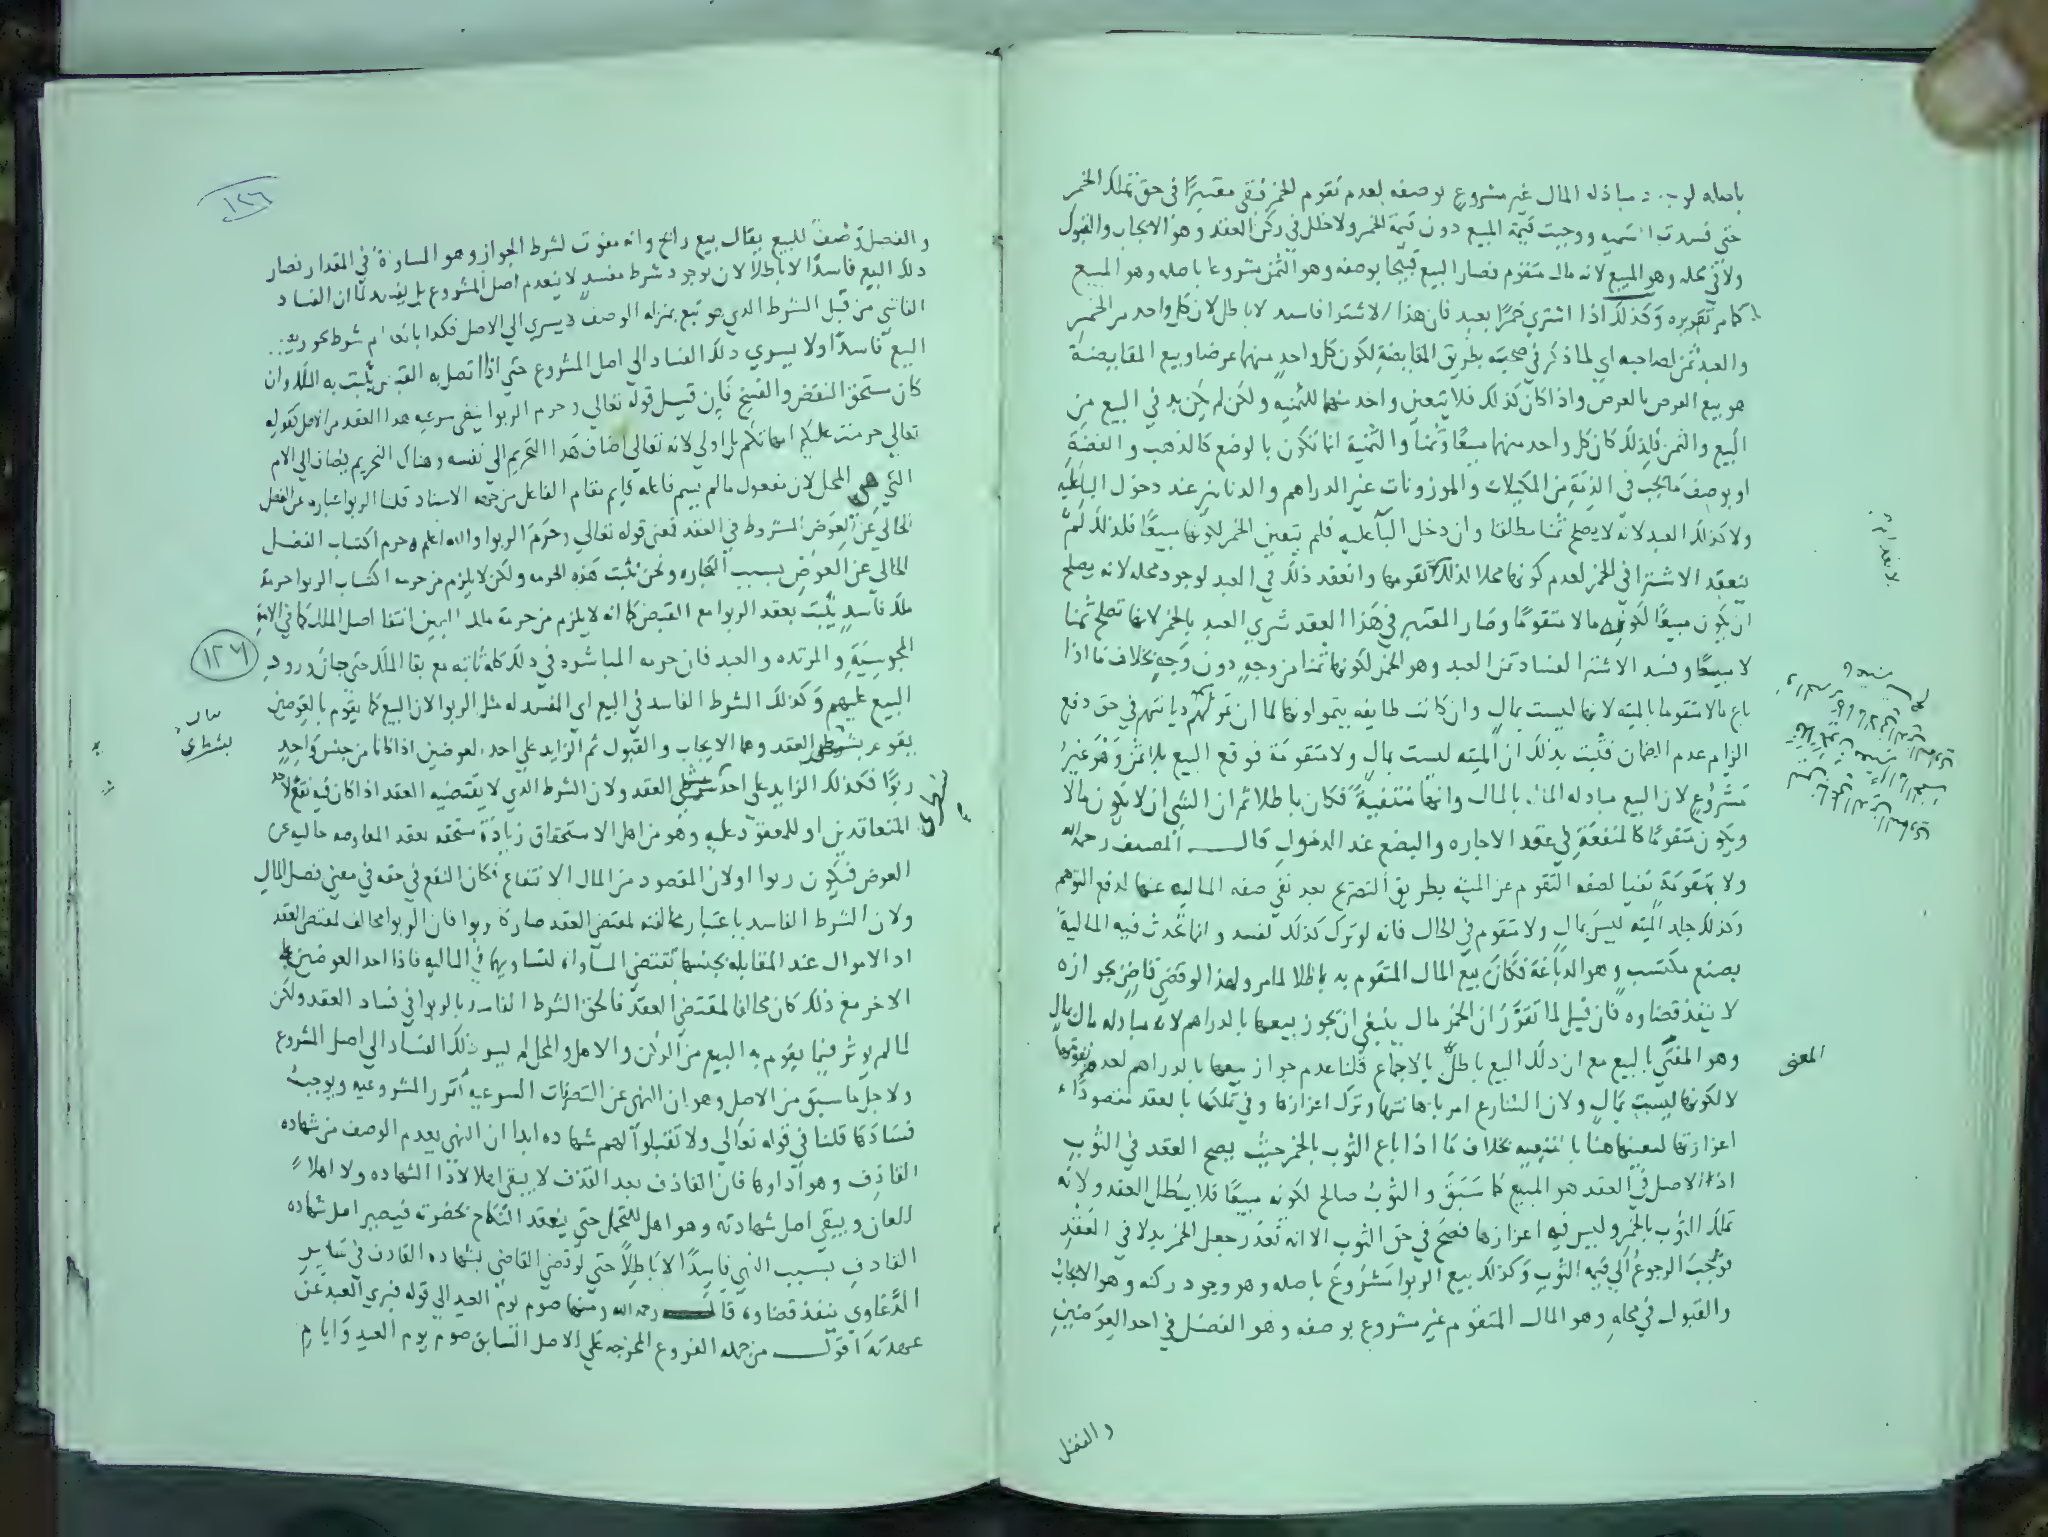 باصله لوجود مبادله المال غير مشروع بوصفه لعدم تقوم الخمر فبقى معتبرًا في حق تملك الخمر
حتى فسدت التسميه ووجبت قيمة المبيع دون قيمة الخمر ولا خلل في ركن العقد وهو الايجاب والقبول
ولا في محله وهو المبيع لانه مال متقوم فصار البيع قبيحا بوصفه وهو الثمن مشروعا باصله وهو المبيع
كما مر تقريره وكذلك اذا اشترى خمرًا بعبد فان هذا الاشترا فاسد لا باطل لان كل واحد من الخمر
والعبد ثمن لصاحبه اي لما ذكر في صحبته بطريق المقايضة لكون كل واحد منهما عرضا وبيع المقايضة
هو بيع العرض بالعرض واذا كان كذلك فلا يتعين واحد منهما للثمنيه ولكن لم يكن بد في البيع من
المبيع والثمن فلذلك كان كل واحد منهما مبيعًا وثمنا والثمنية انما تكون بالوضع كالذهب والفضة
او بوصف ما يجب في الذمة من المكيلات والموزونات غير الدراهم والدنانير عند دخول الباء عليه
ولا كذلك العبد لانه لا يصلح ثمنا مطلقا وان دخل البآ عليه فلم يتعين الخمر لكونها مبيعًا فلذلك لم
ينعقد الاشترا في الخمر لعدم كونها محلا لذلك لعدم تقومها وانعقد ذلك في العبد لوجود محله لانه يصلح
ان يكون مبيعًا لكونه مالا متقومًا وصار المعتبر في هذا العقد شرى العبد بالخمر لانها تصلح ثمنا
لا مبيعًا وفسد الاشترا لفساد ثمن العبد وهو الخمر لكونها ثمنا من وجهٍ دون وجهٍ بخلاف ما اذا
باع مالا متقوما بالميته لانها ليست بمال وان كانت طايفه يتمولونها لما ان تمولهم ديانتهم في حق دفع
الزام عدم الضمان فثبت بذلك ان الميته ليست بمال ولا متقومة فوقع البيع بلا ثمن وهو غير
مشروع لان البيع مبادله المال بالمال وانها منتفية فكان باطلا ثم ان الشي ان لا يكون مالا
ويكون متقومًا كالمنفعة في عقد الاجاره والبضع عند الدخول قال المصنف رحمه الله
ولا بمتقومة نفيا لصفه التقوم عن الميته بطريق التصريح بعد نفي صفه الماليه عنها لدفع التوهم
وكذلك جلد الميته ليس بمال ولا متقوم في الحال فانه لو ترك كذلك لفسد وانما تحدث فيه المالية
بصنع مكتسب وهو الدباغة فكان بيع المال المتقوم به باطلا لما مر ولهذا لو قضى قاضٍ بجوازه
لا ينفذ قضاوه فان قيل لما تقرر ان الخمر مال ينبغي ان يجوز بيعها بالدراهم لانه مبادله مال بمال
وهو المعنى بالبيع مع ان ذلك البيع باطل بالاجماع قلنا عدم جواز بيعها بالدراهم لعدم تقومها
لا لكونها ليست بمال ولان الشارع امر باهانتها وترك اعزازها وفي تملكها بالعقد مقصودًا
اعزازها بخلاف ما اذا باع الثوب بالخمر حيث يصح العقد في الثوب
اذ الاصل في العقد هو المبيع كما سبق والثوب صالح لكونه مبيعًا فلا يبطل العقد ولانه
تملك الثوب بالخمر وليس فيه اعزازها فصح في حق الثوب الا انه تعذر جعل الخمر بدلا في العقد
فوجب الرجوع الى قيمة الثوب وكذلك بيع الربوا مشروع باصله وهو وجود ركنه وهو الايجاب
والقبول في محله وهو المال المتقوم غير مشروع بوصفه وهو الفضل في احد العوضين
المعنى
والفضل
١٢٦
والفضل وصف للبيع يقال بيع رابح وانه مفوت لشرط الجواز وهو المساواة في المقدار فصار
ذلك البيع فاسدًا لا باطلا لان بوجود شرط مفسدٍ لا ينعدم اصل المشروع بل يفسد لما ان الفساد
الناشي من قبل الشرط الذي هو تبع بمنزله الوصف لا يسري الى الاصل فكذا بانعدام شرط
البيع فاسدًا ولا يسري ذلك الفساد الى اصل المشروع حتى اذا اتصل به القبض يثبت به الملك وان
كان مستحق النقض والفسخ فان قيل قوله تعالى وحرم الربوا ينفي شرعيه هذا العقد من الاصل كقوله
تعالى حرمت عليكم امهاتكم بل اولى لانه تعالى اضاف هذا التحريم الى نفسه وهناك التحريم يضاف الى الام
التي هي المحل لان مفعول مالم يسم فاعله قايم مقام الفاعل من جهه الاسناد قلنا الربوا عباره عن الفضل
الخالي عن العوض المشروط في العقد فمعنى قوله تعالى وحرم الربوا والله اعلم وحرم اكتساب الفضل
الخالي عن العوض بسبب التجاره ونحن نثبت هذه الحرمه ولكن لا يلزم من حرمه اكتساب الربوا حرمة
ملك فاسدٍ يثبت بعقد الربوا مع القبض كما انه لا يلزم من حرمة انتفا اصل الملك كما في الامة
المجوسيَّةِ والمرتده والعبد فان حرمه المباشره في ذلك كله ثابته مع بقا الملك حتى جاز ورود
١٢٦
البيع عليهم وكذلك الشرط الفاسد في البيع اي المفسد له مثل الربوا لان البيع كما يقوم بالعوضين
يقوم بشطري العقد وهما الايجاب والقبول ثم الزايد على احد العوضين اذا كانا من جنس واحدٍ
ربوًا فكذلك الزايد على احد شطري العقد ولان الشرط الذي لا يقتضيه العقد اذا كان فيه نفع لاحد
المتعاقدين او للمعقود عليه وهو من اهل الاستحقاق زيادة مستحقه بعقد المعاوضه خاليه عن
العوض فيكون ربوا ولان المقصود من المال الانتفاع فكان النفع في حقه في معنى فضل المال
ولان الشرط الفاسد باعتبار مخالفته لمقتضى العقد صار كالربوا فان الربوا مخالف لمقتضى العقد
اذ الاموال عند المقابلة بجنسها تقتضي المساواة لتساويهما في الماليه فاذا احد العوضين على
الاخر مع ذلك كان مخالفا لمقتضى العقد فالحق الشرط الفاسد بالربوا في فساد العقد ولكن
لما لم يوثر فيما يقوم به البيع من الركن والاهل والمحل لم يسر ذلك الفساد الى اصل المشروع
ولاجل ما سبق من الاصل وهو ان النهى عن التصرفات الشرعيه يقرر المشروعيه ويوجب
فسادها قلنا في قوله تعالى ولا تقبلوا لهم شهاده ابدا ان النهى يعدم الوصف من شهاده
القاذف وهو اداوها فان القاذف بعد القذف لا يبقى اهلا لاداء الشهاده ولا اهلاً
للعان ويبقى اصل شهادته وهو اهل للتحمل حتى ينعقد النكاح بحضرته فيصير اصل شهاده
القاذف بسبب النهي فاسدًا لا باطلاً حتى لو قضى القاضي بشهاده القاذف في ساير
الدعاوى ينفذ قضاوه قال رحمه الله ومنها صوم يوم العيد الى قوله فبرى العبد عن
عهدته اقول من جمله الفروع المخرجه على الاصل السابق صوم يوم العيد وايام
بشطرى